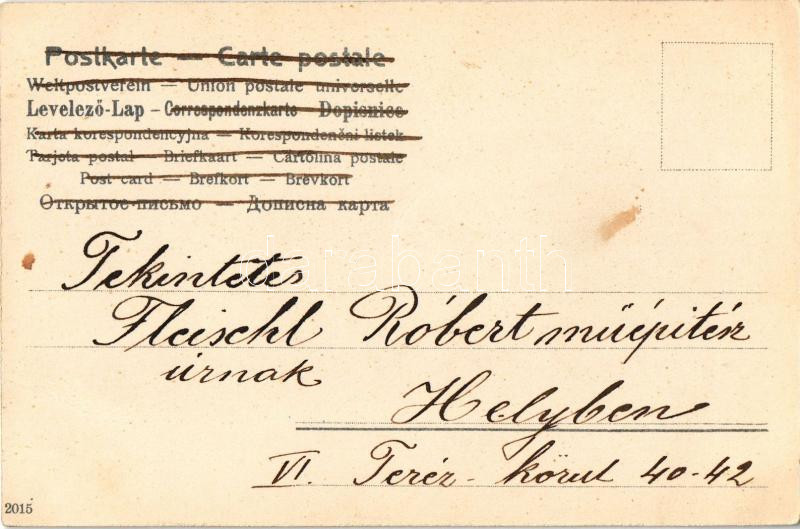 Postkarte — Carte postale
Weltpostverein — Union postale universelle
Levelező-Lap – Correspondenzkarte – Dopisnice
Karta korespondencyjna – Korespondenční listek
Tarjeta postal — Briefkaart — Cartolina postale
Post card — Brefkort — Brevkort
Открытое письмо — Дописна карта
darabanth
Tekintetes
Fleischl Róbert műépitész
úrnak
Helyben
VI. Teréz-körut 40-42
2015